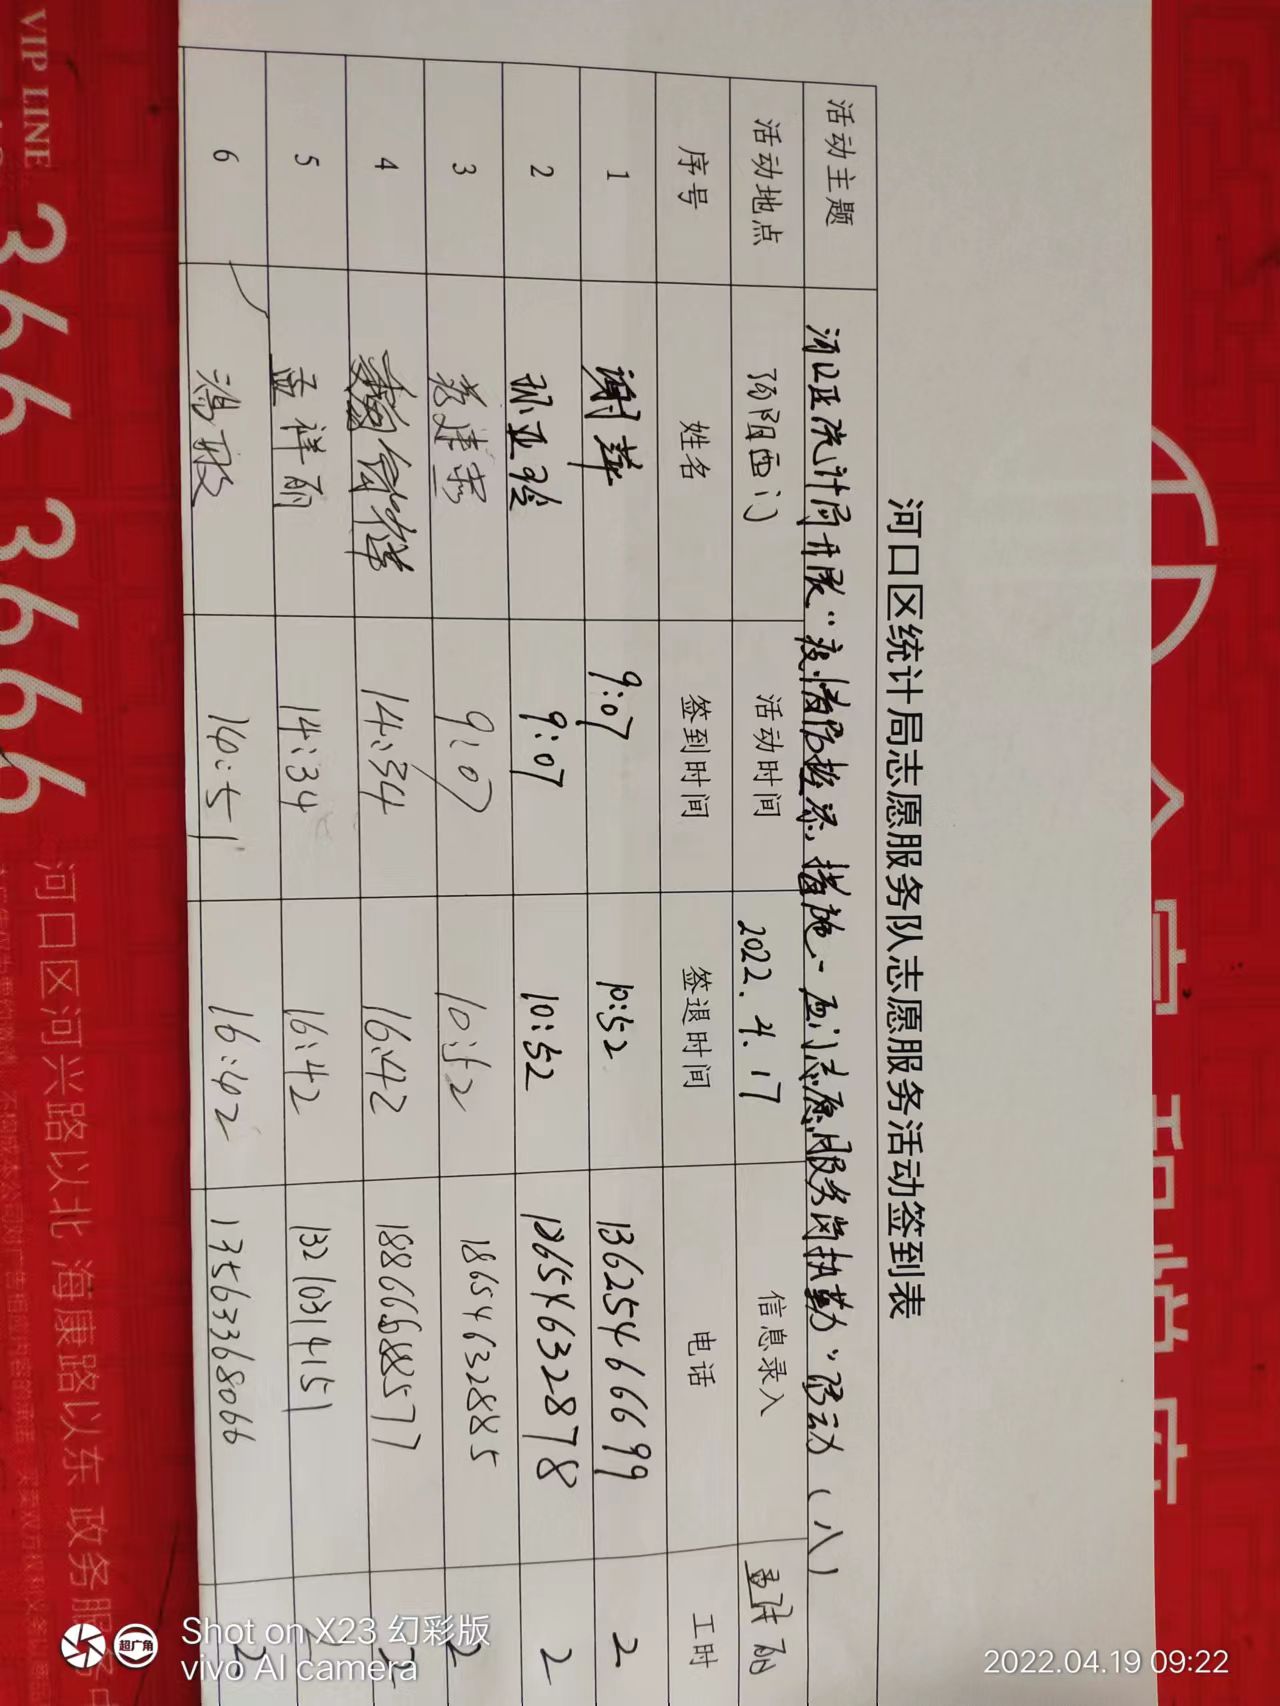 河口区统计局志愿服务队志愿服务活动签到表
活动主题 河口区统计局开展“疫情防控 措施 西门志愿服务岗执勤”活动（八）
活动地点 河阳西门 活动时间 2022.4.17 信息录入 孟祥丽
序号 姓名 签到时间 签退时间 电话 工时
1 谢萍 9:07 10:52 13625466699 2
2 孙亚玲 9:07 10:52 18654632878 2
3 9:07 10:52 18654632885 2
4 14:34 16:42 18866688577 2
5 孟祥丽 14:34 16:42 13210314151
6 冯敏 14:51 16:42 13563368066 2
VIP LINE
366 3666
河口区河兴路以北 海康路以东 政务服务中
超广角
Shot on X23 幻彩版
vivo AI camera
2022.04.19 09:22